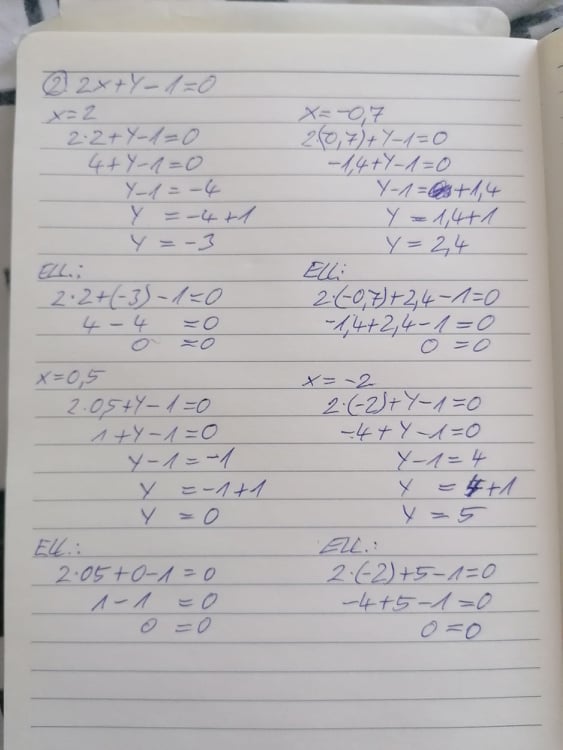 ② 2x+y-1=0
x=2
2·2+y-1=0
4+y-1=0
y-1=-4
y =-4+1
y =-3
Ell.:
2·2+(-3)-1=0
4-4 =0
0 =0
x=-0,7
2·(-0,7)+y-1=0
-1,4+y-1=0
y-1=+1,4
y =1,4+1
y =2,4
Ell:
2·(-0,7)+2,4-1=0
-1,4+2,4-1=0
0 =0
x=0,5
2·0,5+y-1=0
1+y-1=0
y-1=-1
y =-1+1
y =0
Ell.:
2·05+0-1=0
1-1 =0
0 =0
x=-2
2·(-2)+y-1=0
-4+y-1=0
y-1=4
y =4+1
y =5
Ell.:
2·(-2)+5-1=0
-4+5-1=0
0=0